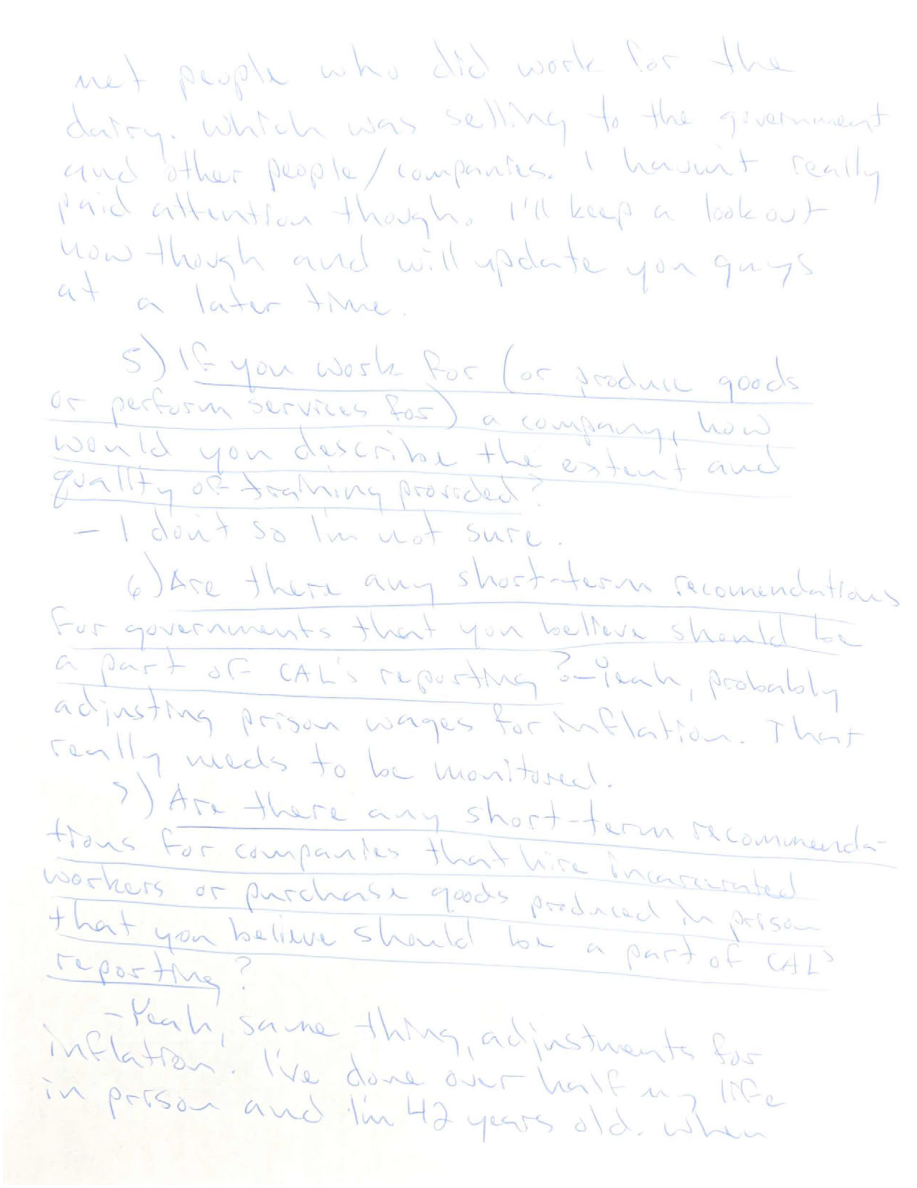 met people who did work for the
dairy. which was selling to the government
and other people/companies. I havn't really
paid attention though. I'll keep a lookout
now though and will update you guys
at a later time.
5) If you work for (or produce goods
or perform services for) a company, how
would you describe the extent and
quality of training provided?
- I don't so I'm not sure.
6) Are there any short-term recomendations
for governments that you believe should be
a part of CAL's reporting? - Yeah, probably
adjusting prison wages for inflation. That
really needs to be monitored.
7) Are there any short-term recommenda-
tions for companies that hire incarcerated
workers or purchase goods produced in prison
that you believe should be a part of CAL's
reporting?
- Yeah, same thing, adjustments for
inflation. I've done over half my life
in prison and I'm 42 years old. when